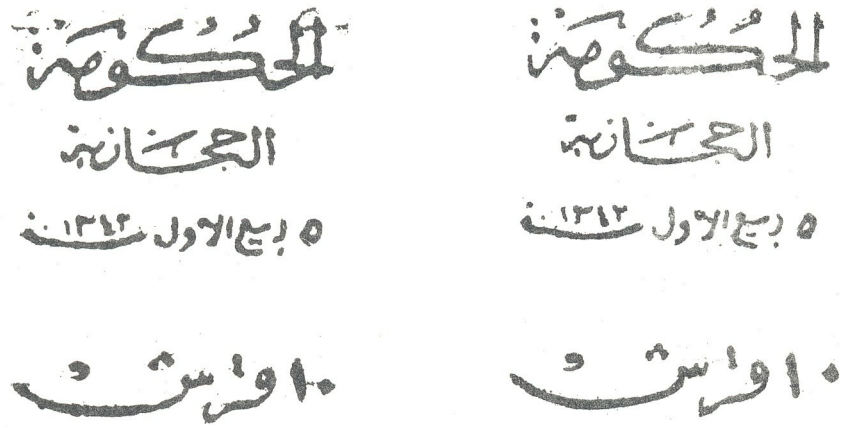 الحُكُومة
الحجازية
٥ ربيع الاول سنة ١٣٤٣
١٠ قرش
الحُكُومة
الحجازية
٥ ربيع الاول سنة ١٣٤٣
١٠ قرش